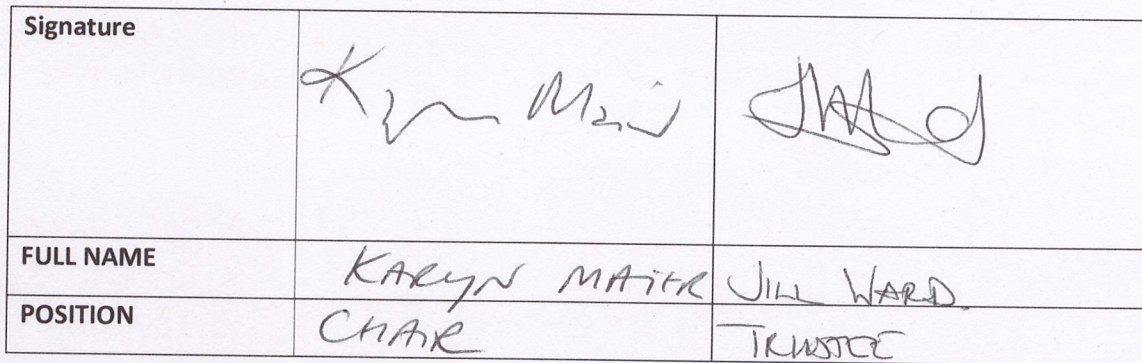 Signature
Karyn Maier
FULL NAME KARYN MAIER JILL WARD
POSITION CHAIR TRUSTEE